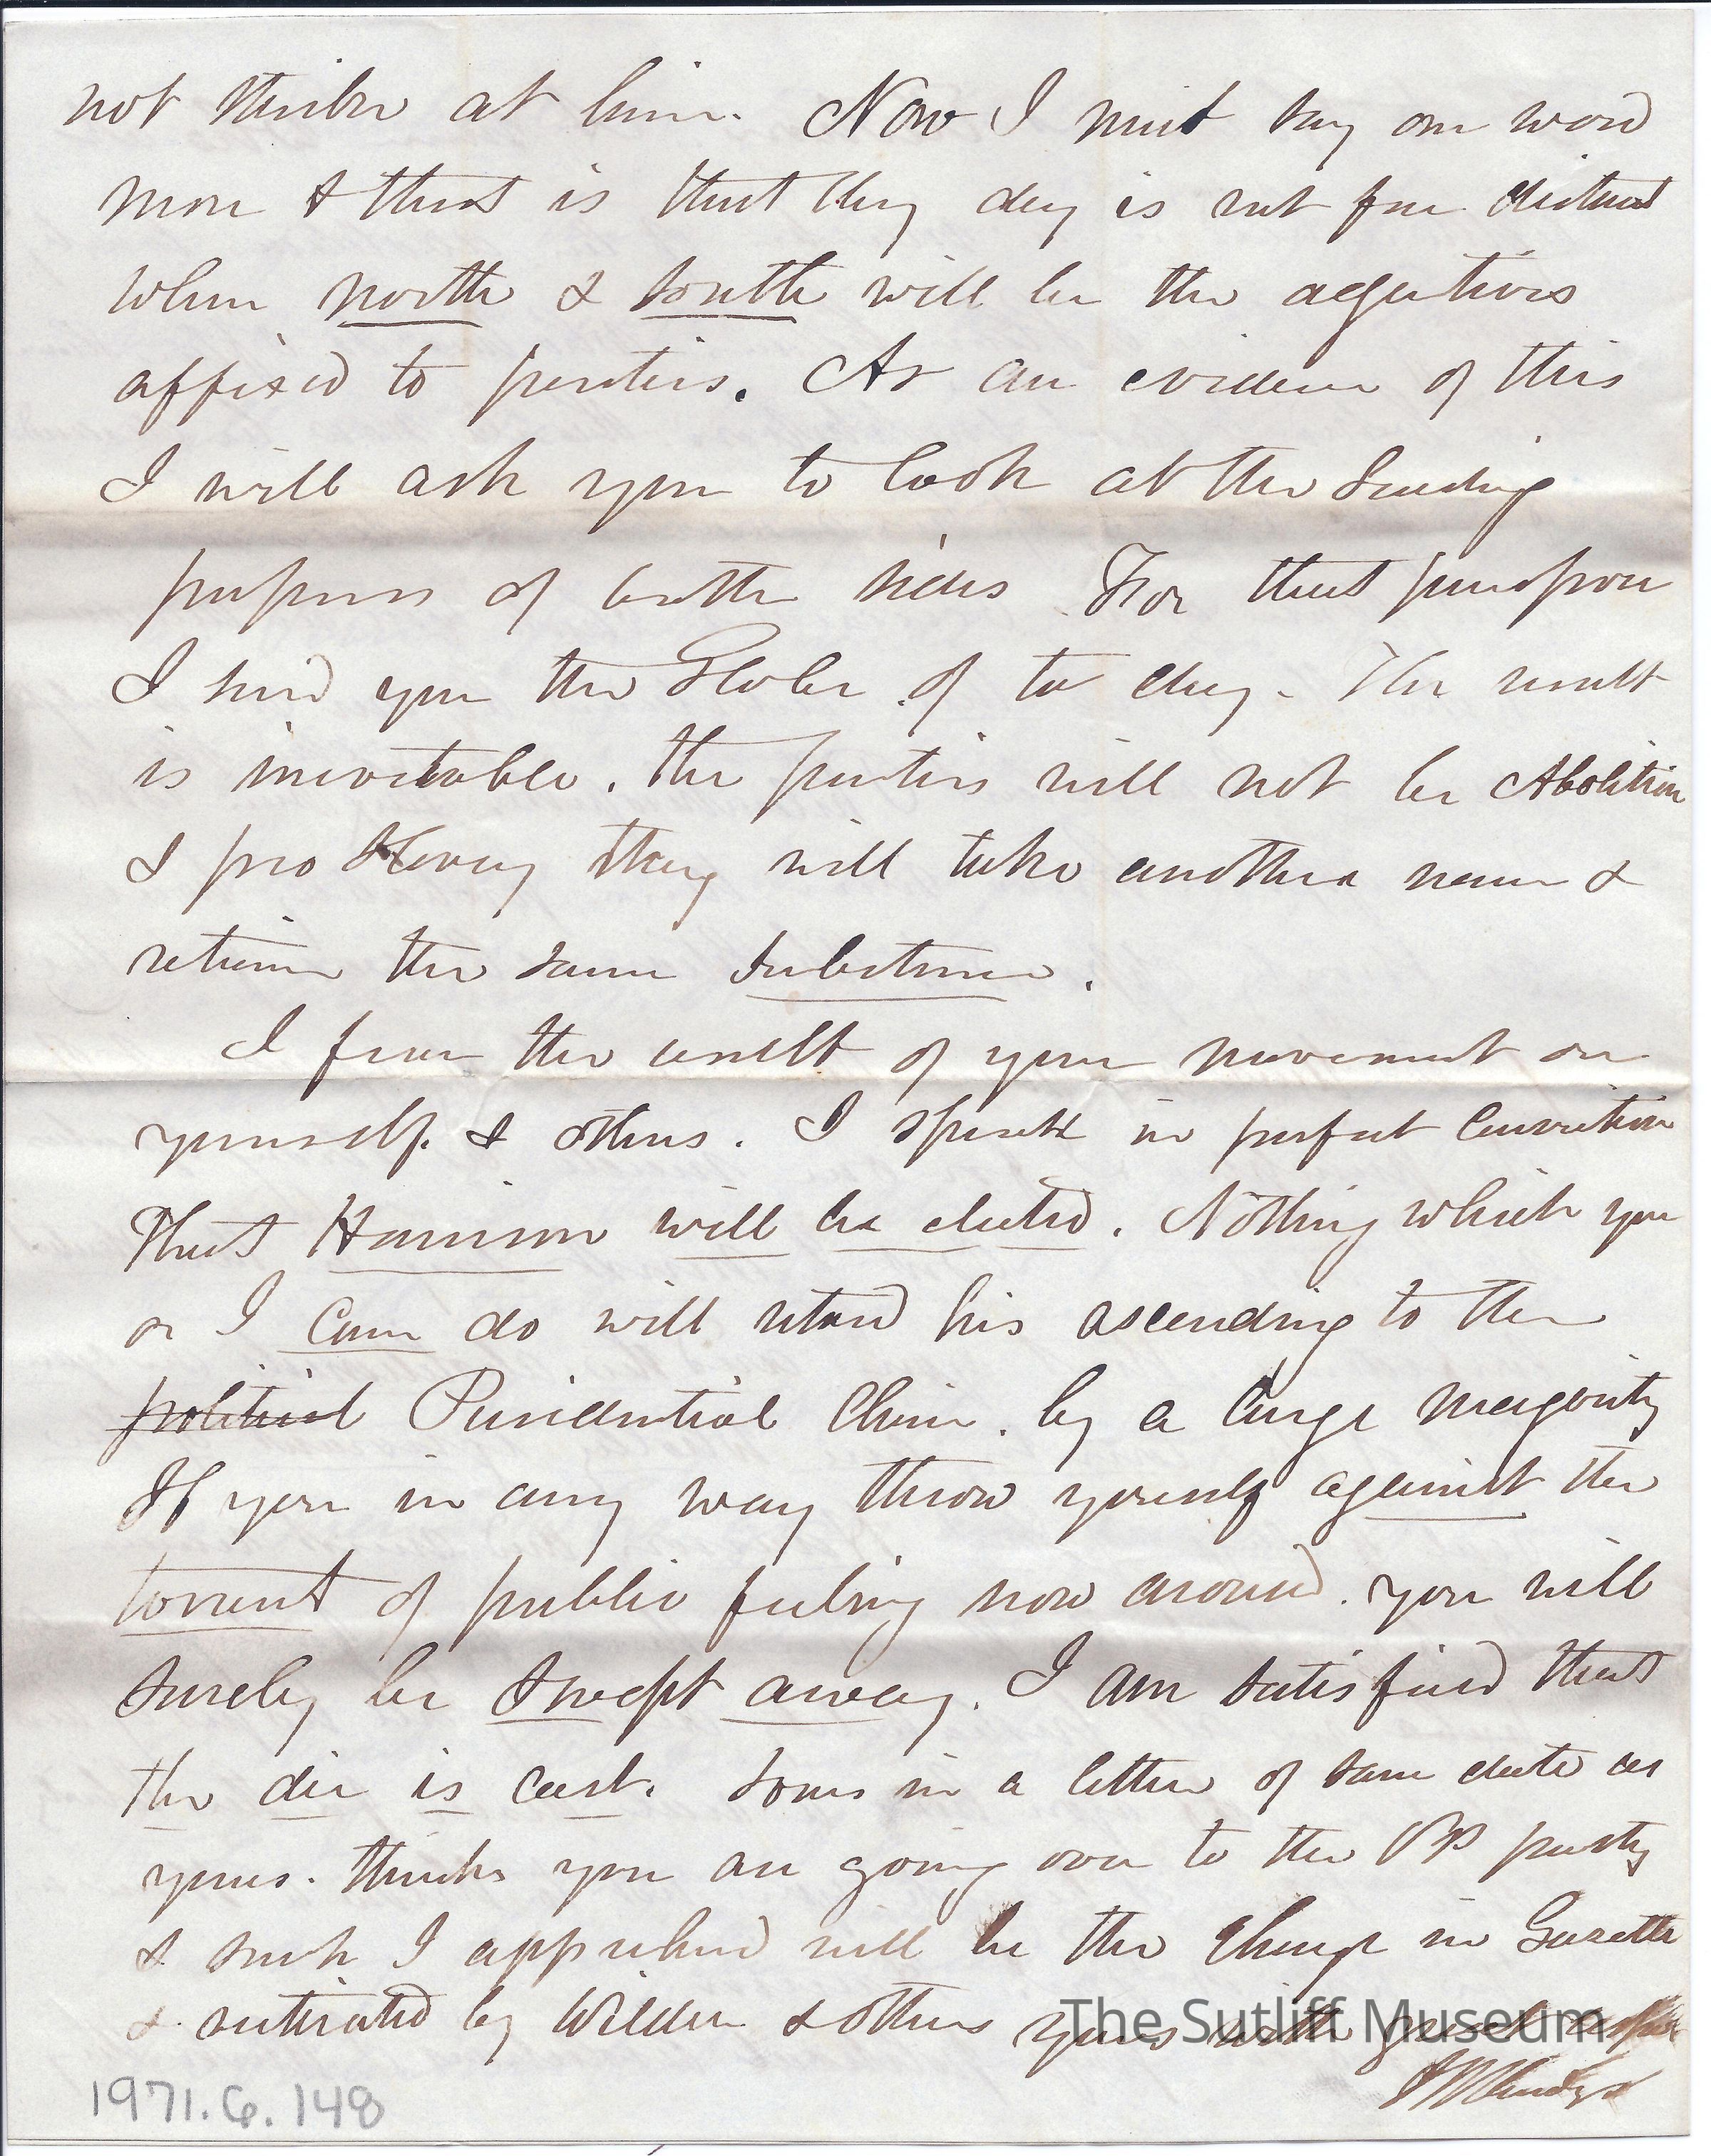 not strike at him. Now I must say one word
more & that is that they day is not far distant
when north & south will be the adjectives
affixed to parties. As an evidence of this
I will ask you to look at the leading
papers of both sides For that purpose
I send you the Globe of to day. The result
is inevitable. The parties will not be Abolition
& pro Slavery they will take another name &
retain the same substance.
I fear the result of your movement on
yourself. & others. I speak in perfect conviction
That Harrison will be elected. Nothing which you
or I can do will retard his ascending to the
political Presidential Chair. by a large majority
If you in any way throw yourself against the
torrent of public feeling now aroused. you will
surely be swept away. I am satisfied that
the die is cast. in a letter of same date as
yours. thinks you are going over to the VB party
& such I apprehend will be the charge in Gazette
& reiterated by Wilder & others yours with great
The Sutliff Museum
1971.6.148